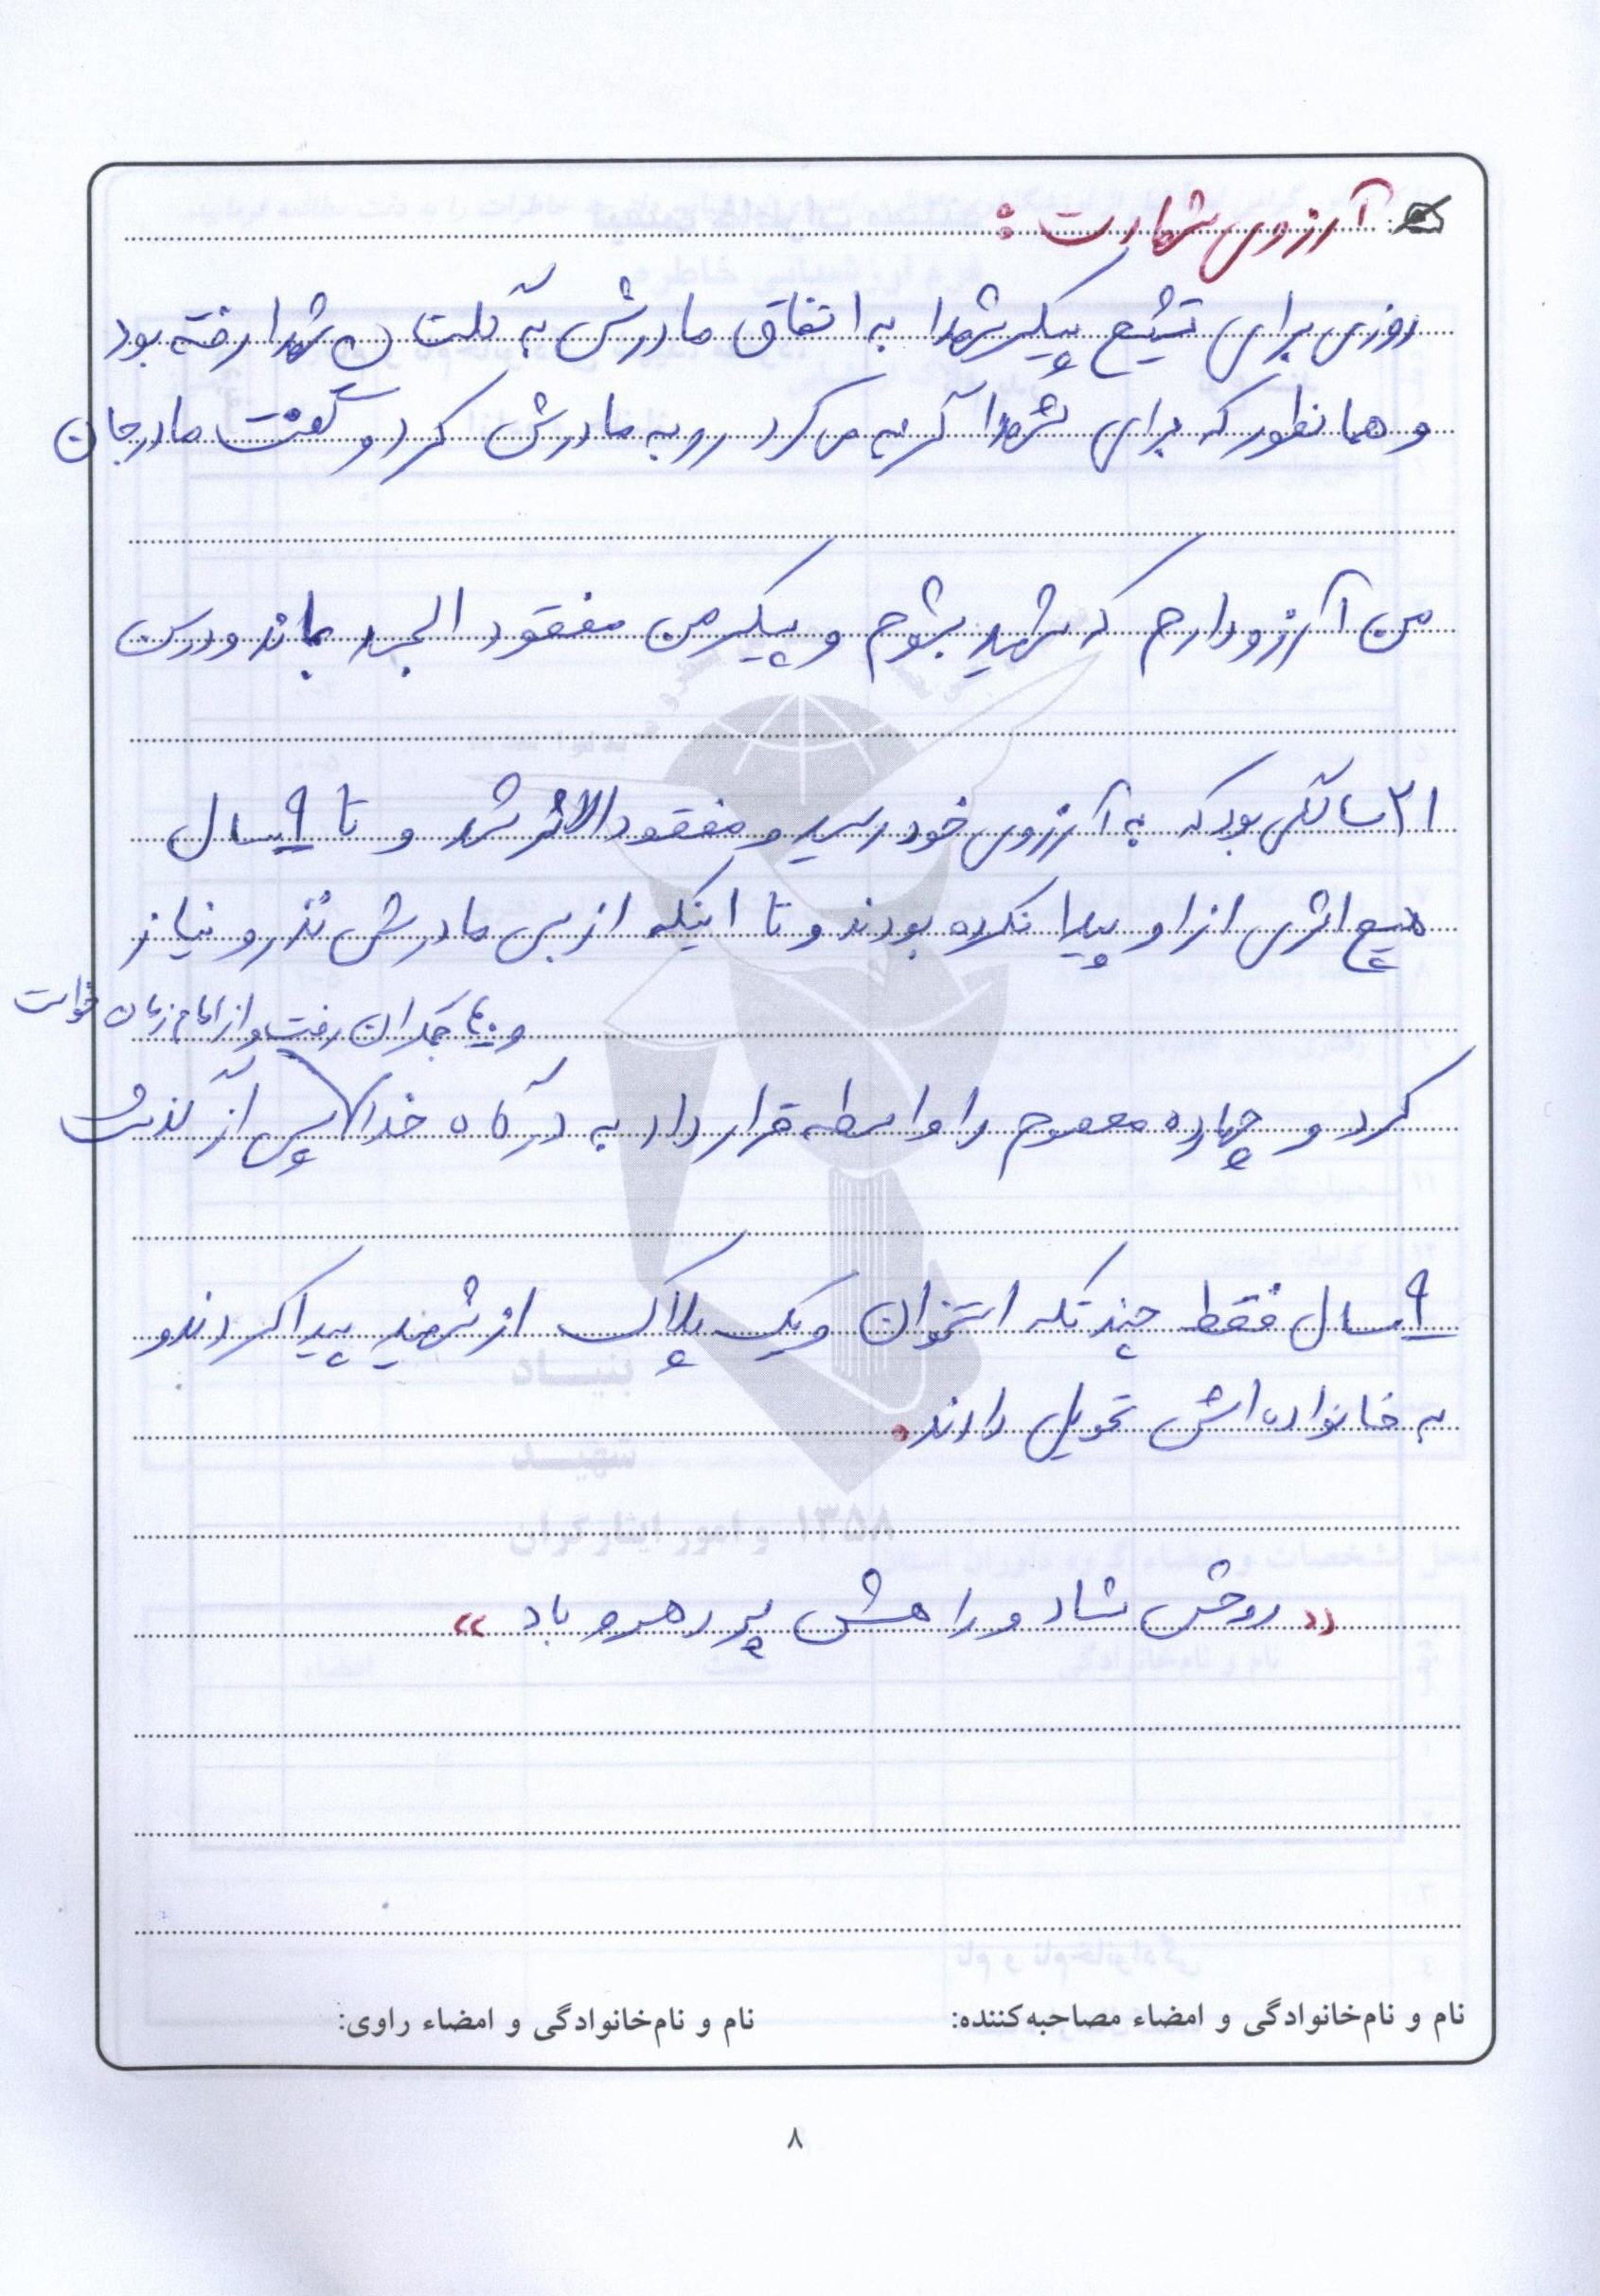 آرزوی شهادت :
روزی برای تشییع پیکر شهدا به اتفاق مادرش به گلستان شهدا رفته بود
و همانطور که برای شهدا گریه می کرد رو به مادرش کرد و گفت مادر جان
من آرزو دارم که شهید بشوم و پیکر من مفقود الجسد بماند و در سن
۲۱ سالگی بود که به آرزوی خود رسید و مفقود الاثر شد و تا ۹ سال
هیچ اثری از او پیدا نکرده بودند و تا اینکه از بس مادرش نذر و نیاز
و به جمکران رفت و از امام زمان خواست
کرد و چهارده معصوم را واسطه قرار داد به درگاه خدا پس از گذشت
۹ سال فقط چند تکه استخوان و یک پلاک از شهید پیدا کردند و
به خانواده اش تحویل دادند.
بنیاد
شهید
و امور ایثارگران ۱۳۵۸
«روحش شاد و راهش پر رهرو باد»
نام و نام‌خانوادگی و امضاء مصاحبه‌کننده:
نام و نام‌خانوادگی و امضاء راوی:
۸